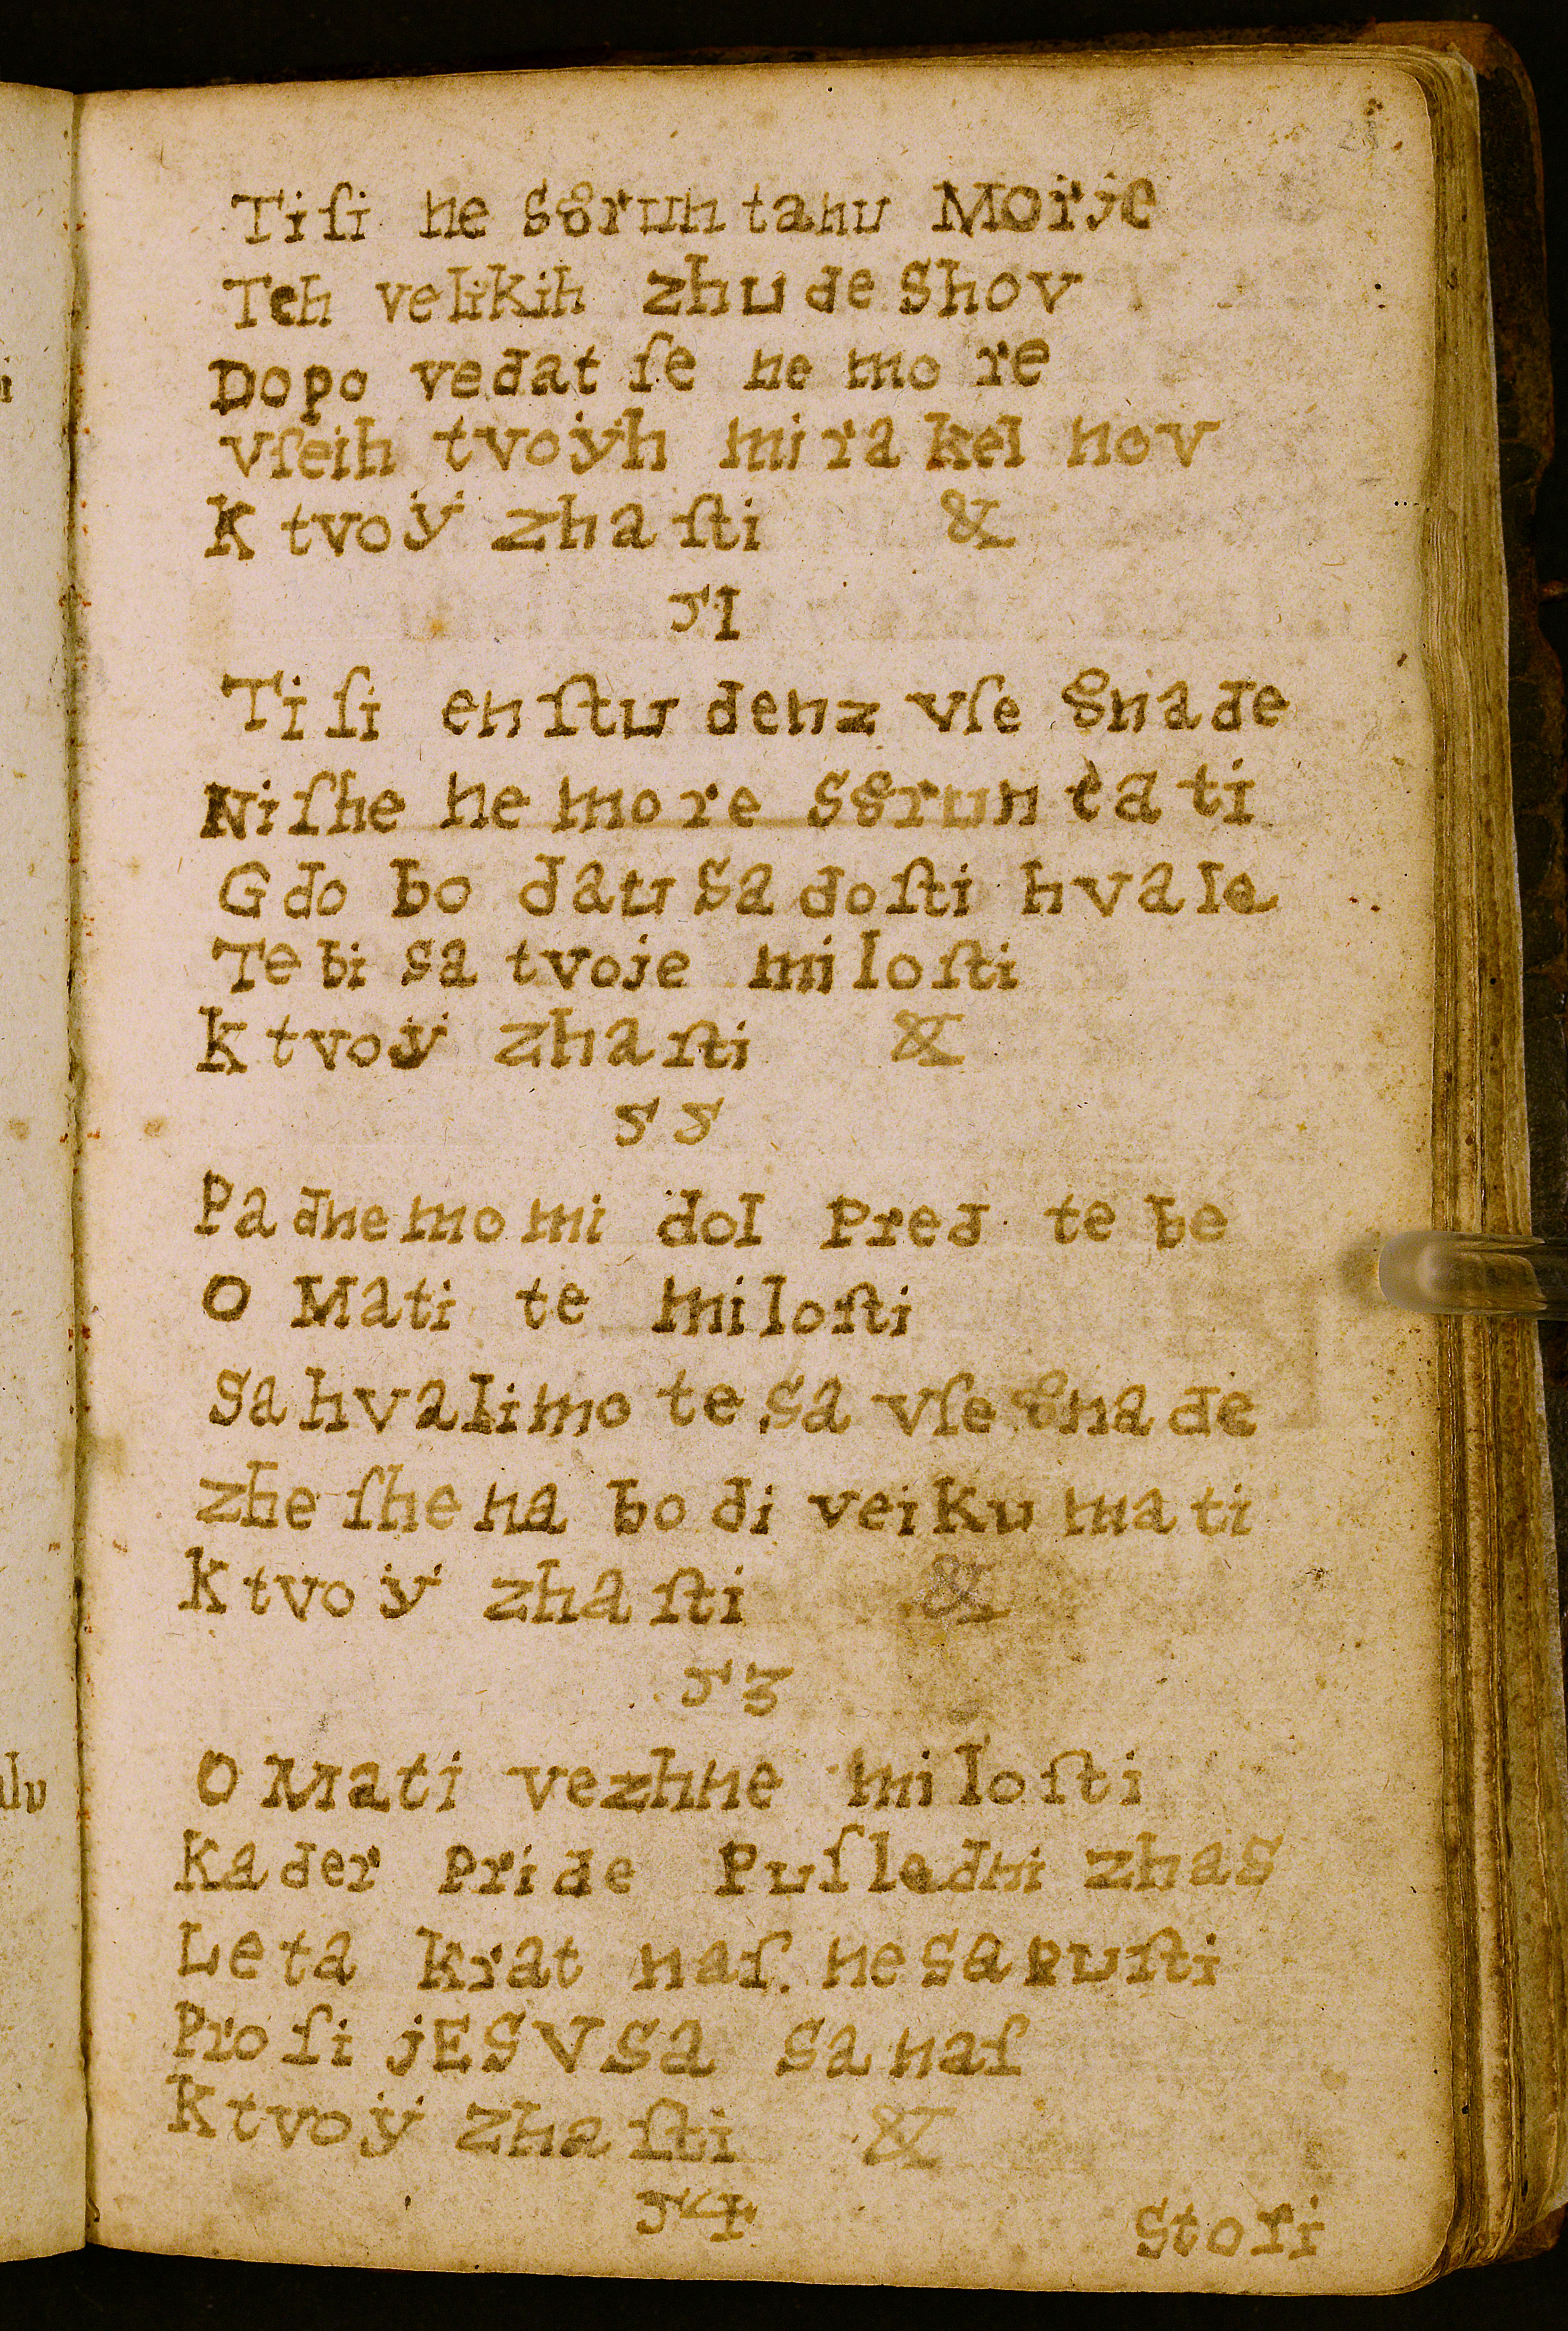 Ti ſi ne sgruntanu Morje
Teh velikih zhudeshov
Dopovedat ſe ne more
vſeih tvoÿh mirakelnov
K tvoÿ zhaſti &
51
Ti ſi en ſtudenz vſe gnade
Niſhe ne more sgruntati
Gdo bo dau sadoſti hvale
Tebi sa tvoje miloſti
K tvoÿ zhaſti &
55
Padnemo mi dol Pred tebe
O Mati te miloſti
Sahvalimo te sa vſe gnade
zheſhena bodi veiku mati
K tvoÿ zhaſti &
53
O Mati vezhne miloſti
Kader Pride Puſledni zhas
Le ta krat naſ. ne sapuſti
Proſi jESVSa sa naſ
K tvoÿ zhaſti &
54
Stoſi